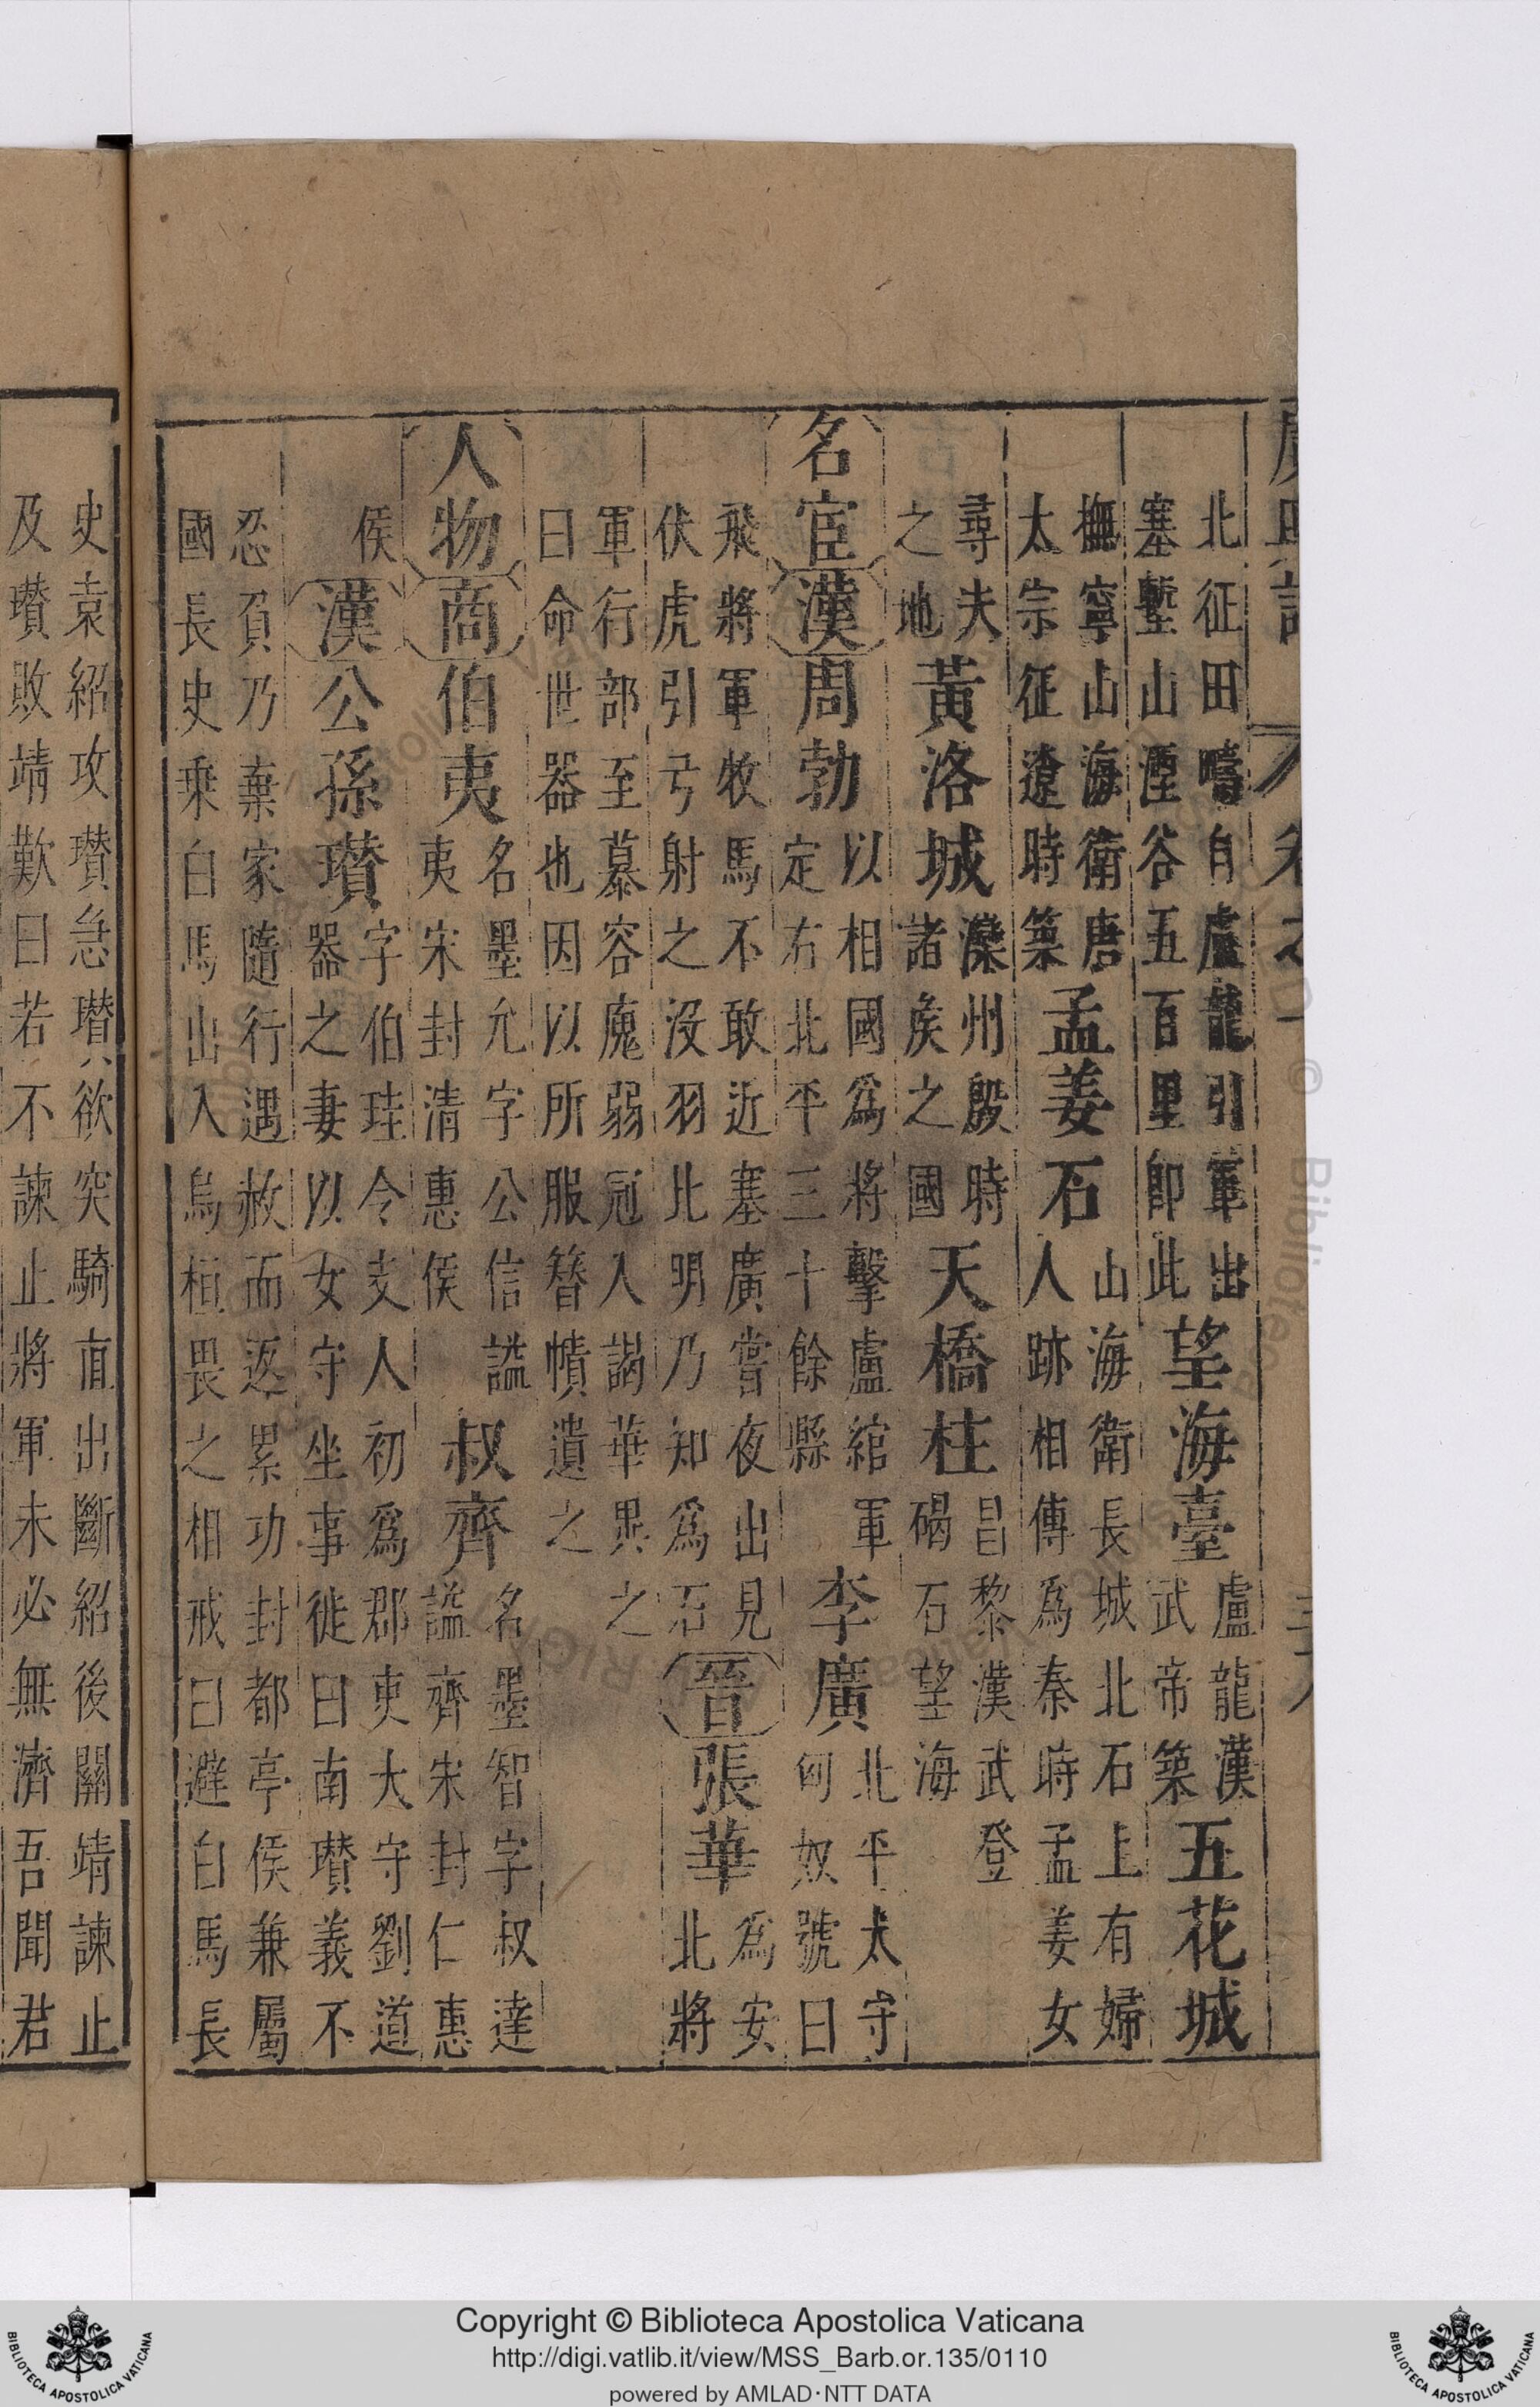 廣輿記 卷之一
北征田疇自盧龍引軍出塞塹山湮谷五百里即此望海臺盧龍漢武帝築五花城
撫寧山海衛唐太宗征遼時築孟姜石山海衛長城北石上有婦人跡相傳為秦時孟姜女
尋夫之地黃洛城灤州殷時諸侯之國天橋柱昌黎漢武登碣石望海
名宦漢周勃以相國為將擊盧綰軍定右北平三十餘縣李廣北平太守匈奴號曰
飛將軍牧馬不敢近塞廣嘗夜出見伏虎引弓射之没羽比明乃知為石晉張華為安北將
軍行部至慕容廆弱冠入謁華異之曰命世器也因以所服簪幘遺之
人物商伯夷名墨允字公信謚夷宋封清惠侯叔齊名墨智字叔達謚齊宋封仁惠
侯漢公孫瓚字伯珪令支人初為郡吏大守劉道器之妻以女守坐事徙日南瓚義不
忍負乃棄家隨行遇赦而返累功封都亭侯兼屬國長史乘白馬出入烏桓畏之相戒曰避白馬長
史袁紹攻瓚急瓚欲突騎直出斷紹後關靖諫止
及瓚敗靖歎曰若不諫止將軍未必無濟吾聞君
Copyright © Biblioteca Apostolica Vaticana
http://digi.vatlib.it/view/MSS_Barb.or.135/0110
powered by AMLAD·NTT DATA
BIBLIOTECA APOSTOLICA VATICANA
BIBLIOTECA APOSTOLICA VATICANA